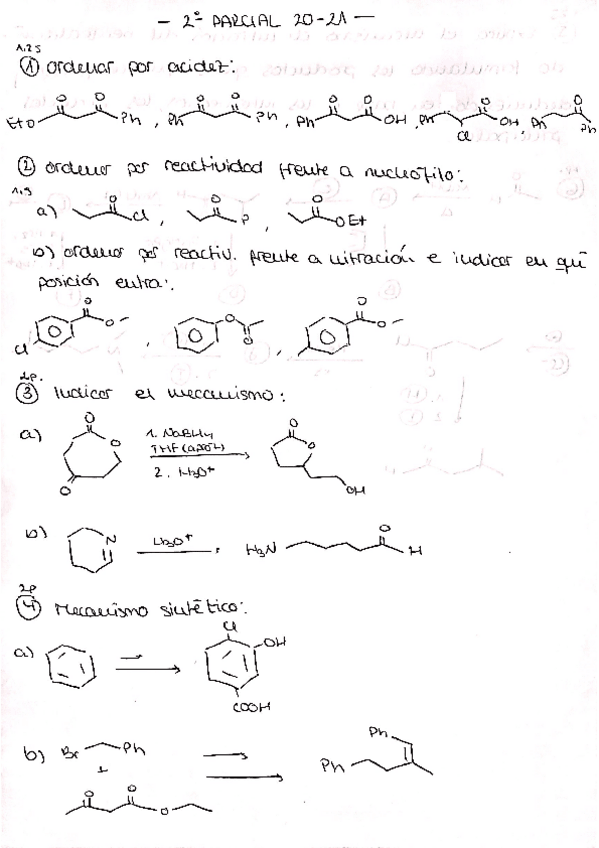 - 2º PARCIAL 20-21 -
1.25
① ordenar por acidez:
O O O O O O O O
EtO Ph , Ph Ph , Ph OH , Ph OH , Ph Ph
Cl
② ordenar por reactividad frente a nucleófilo:
1.5
a) O O O
Cl , , OEt
b) ordenar por reactiv. frente a nitración e indicar en qué
posición entra:
O O O
Cl O , O , O
2p.
③ Indicar el mecanismo:
a) O O O 1. NaBH4 O O
THF (aprót)
O 2. H3O+ OH
b) N H3O+ H2N O H
2p
④ Mecanismo sintético:
a) Cl OH
COOH
b) Br Ph Ph
+ Ph
O O O